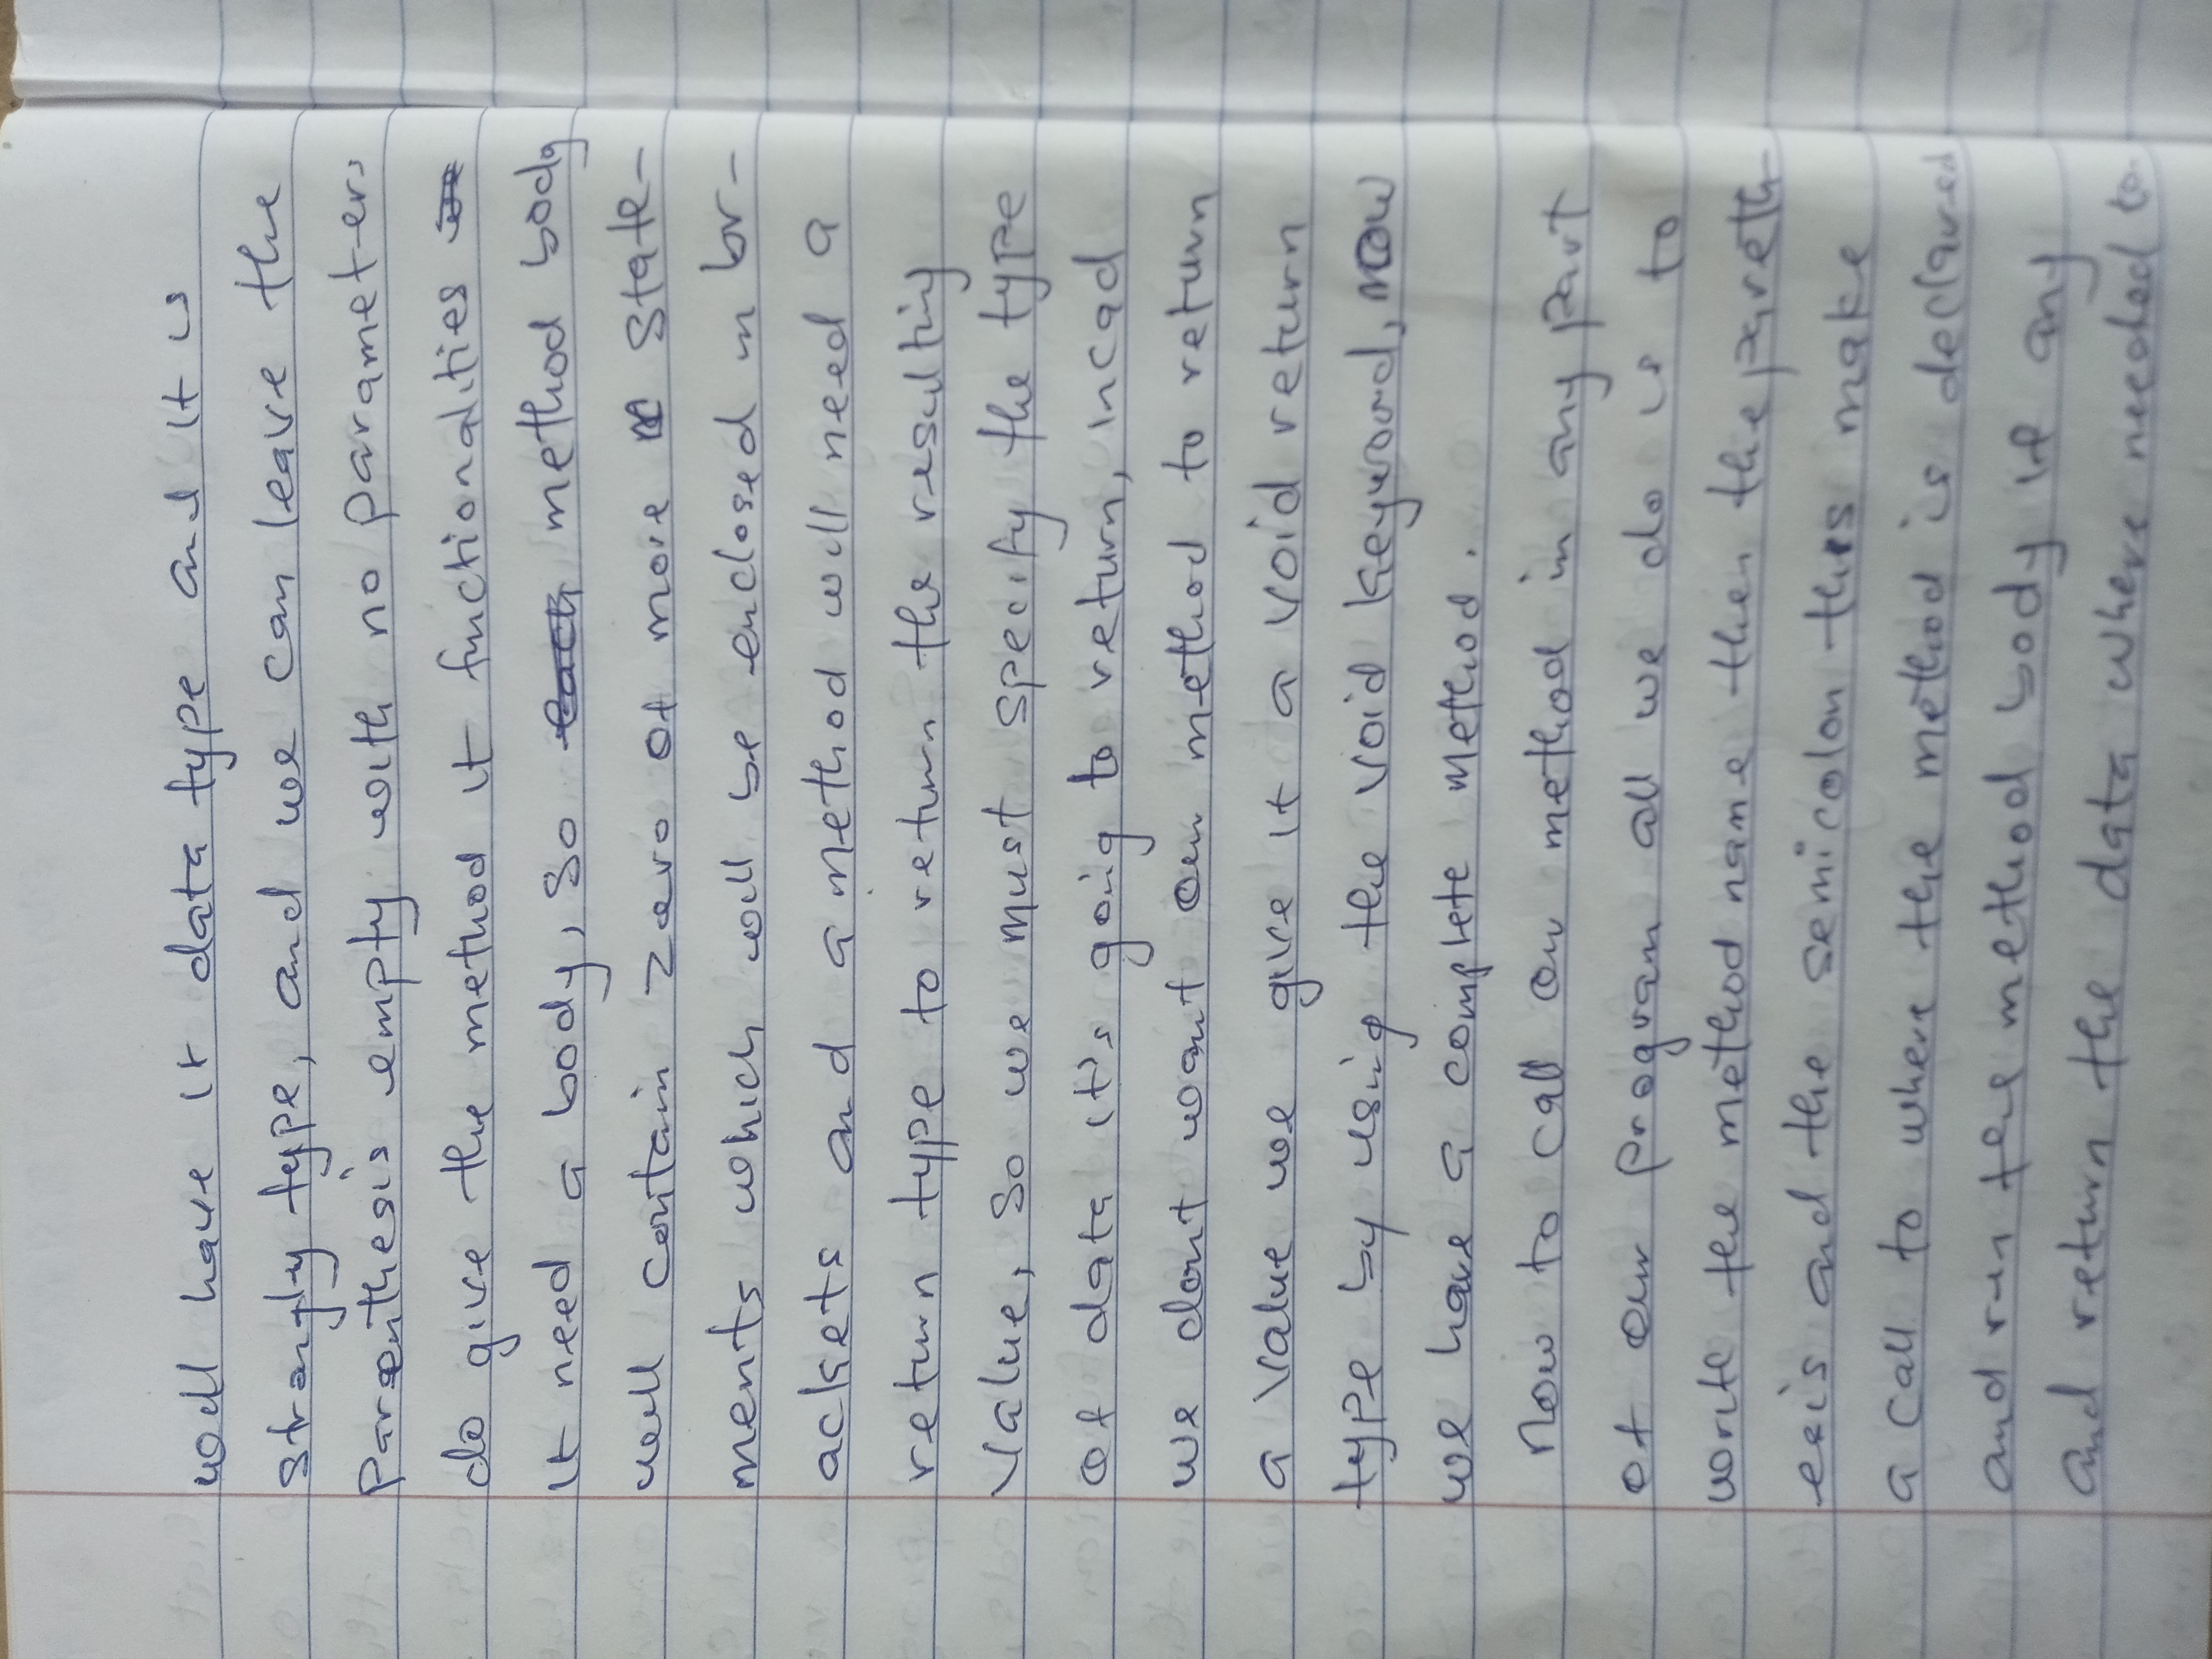 will have it data type and it is
strongly type, and we can leave the
Parenthesis empty with no parameters
do give the method it functionalities
it need a body, so method body
will contain zero or more state-
ments which will be enclosed in br-
ackets and a method will need a
return type to return the resulting
Value, so we must specify the type
of data it's going to return, incad
we dont want our method to return
a value we give it a void return
type by using the void keyword, now
we have a complete method.
now to call our method in any part
of our program all we do is to
write the method name then the pareth-
esis and the semicolon this make
a call to where the method is declared
and run the method body if any
and return the data where needed to.